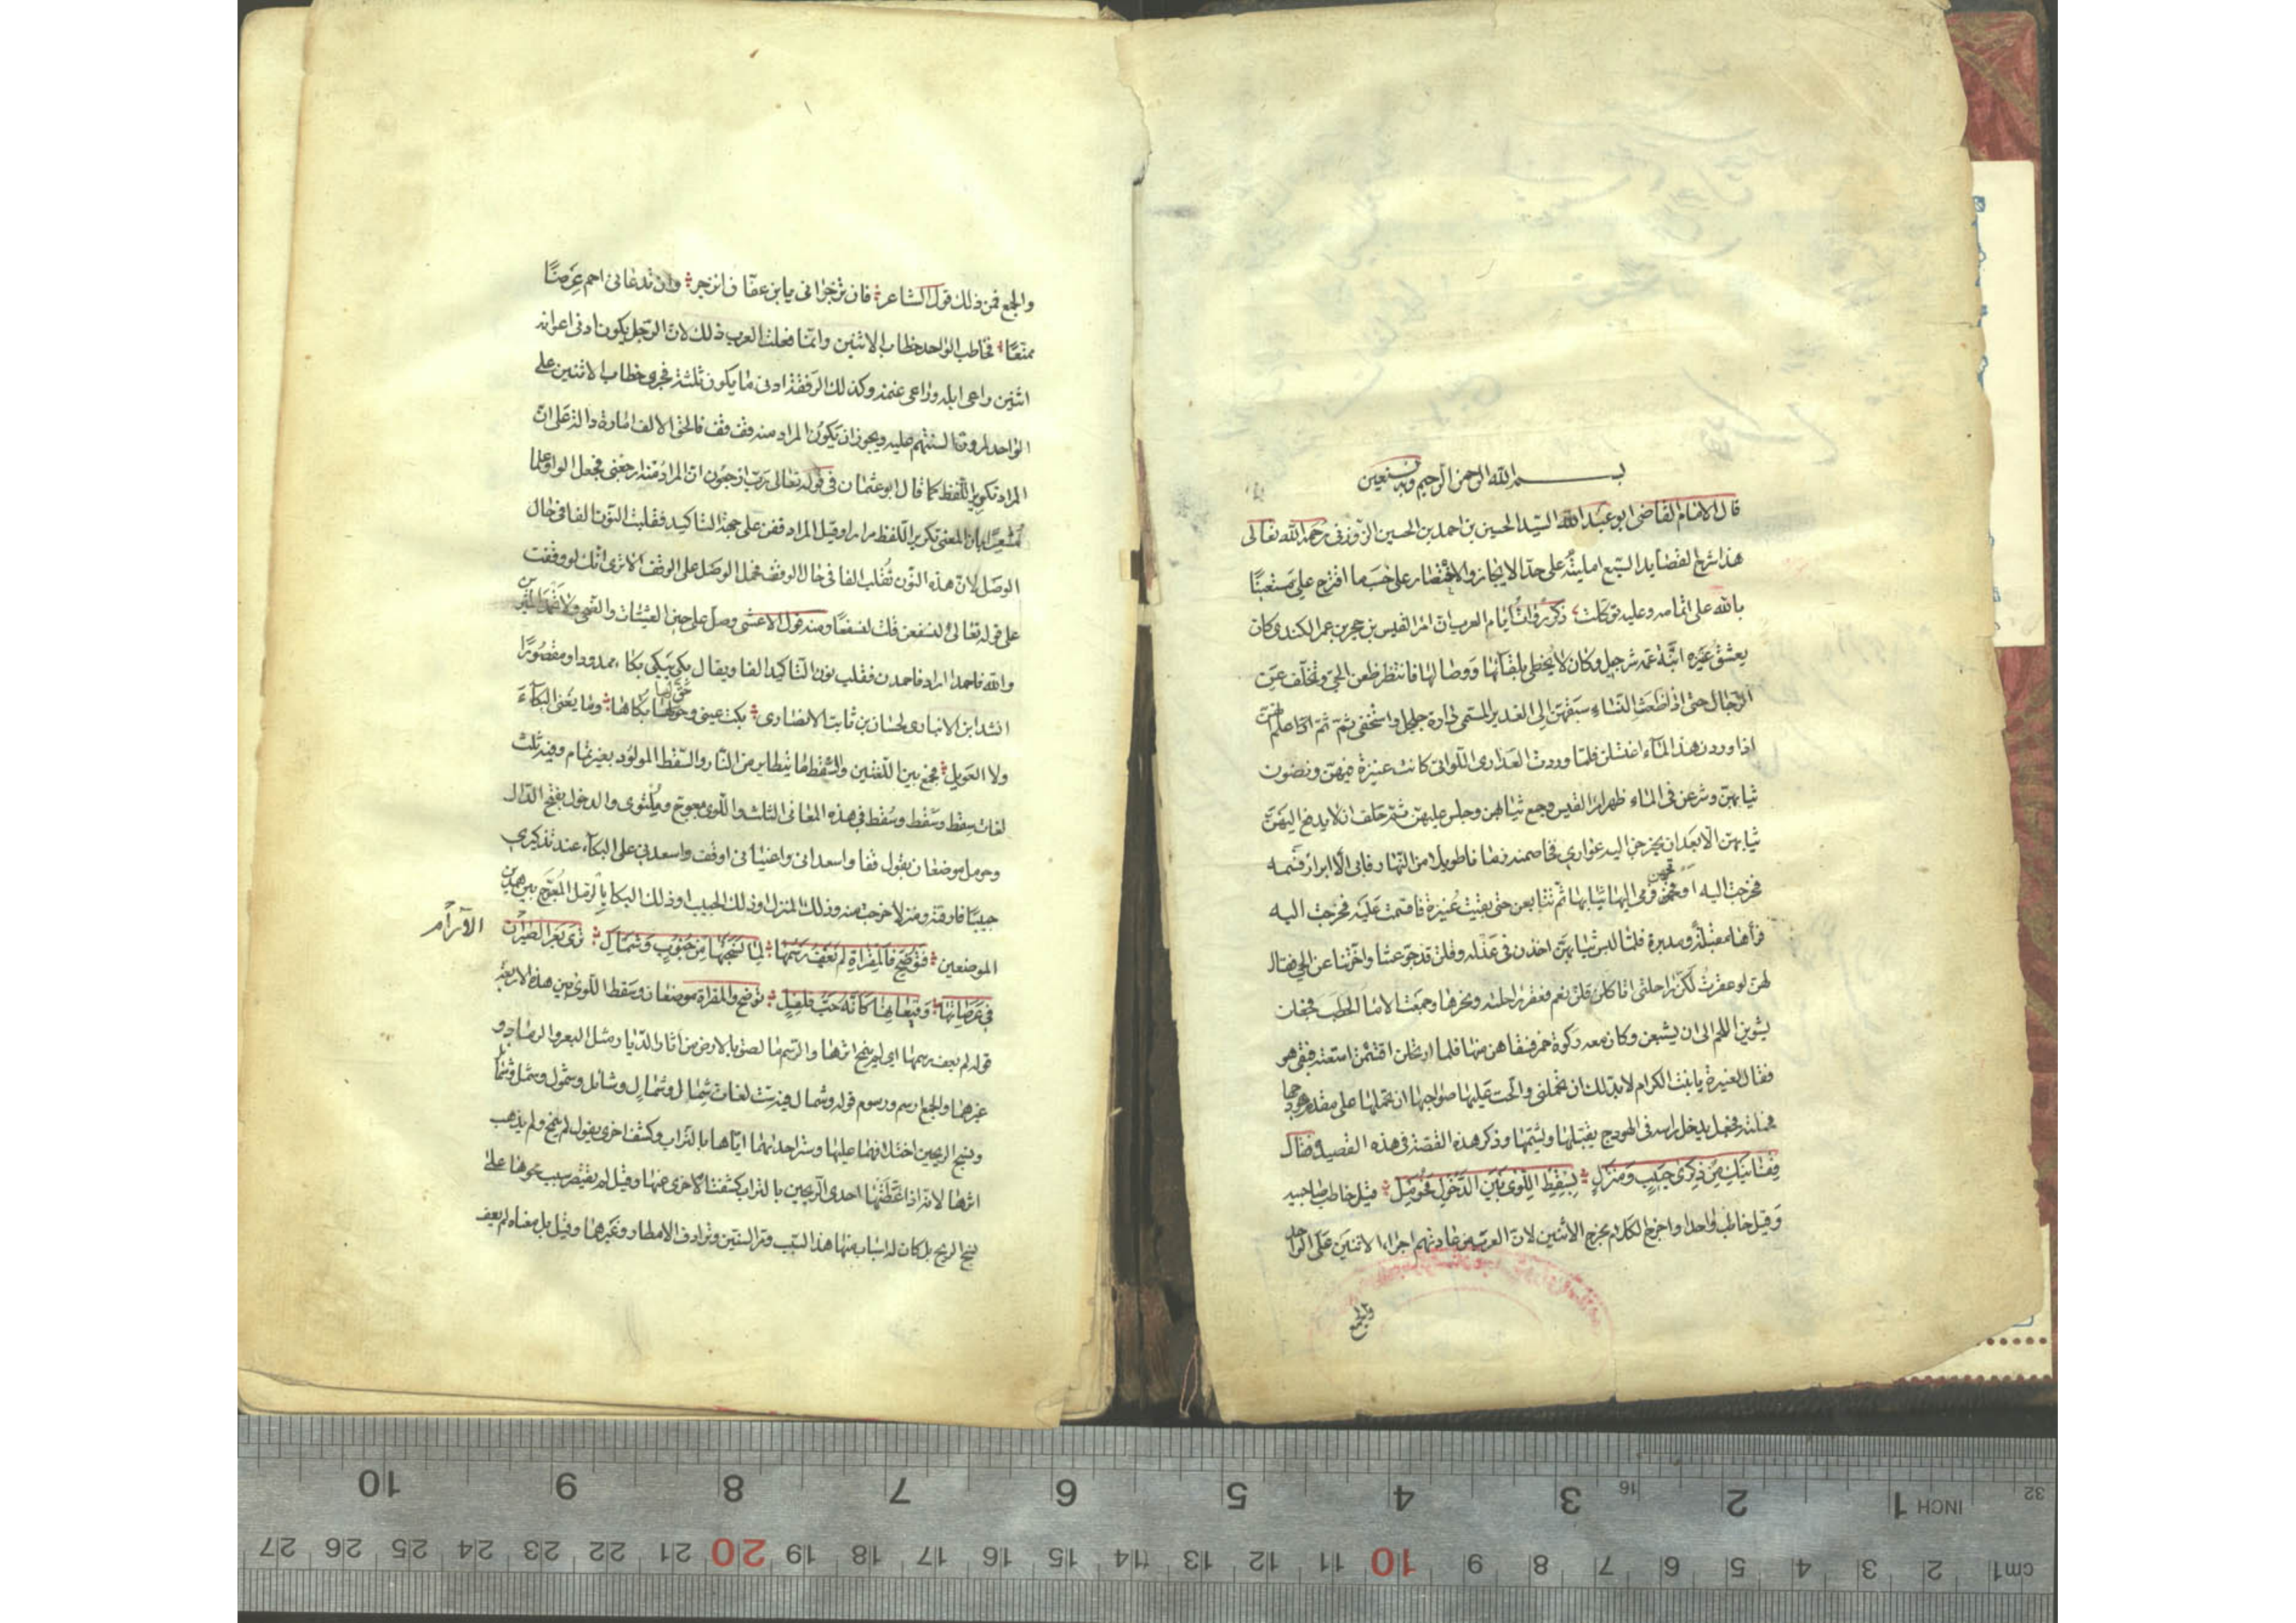 بســـــم الله الرحمن الرحيم وبه نستعين
قال الامام القاضى ابو عبد الله السيد الحسين بن احمد بن الحسين الزوزنى رحمه الله تعالى
هذا شرح لقصايد السبع امليته على حد الايجاز والاقتصار على حسب ما اقترح على مستعينا
بالله على اتمامه وعليه توكلت ذكر رواة ايام العرب ان امرا القيس بن حجر بن عمر الكندى كان
يعشق عنيزه ابنة عمه شرجيل وكان لا يحظى بلقآئها ووصالها فانتظر ظعن الحى وتخلف عن
الرجال حتى اذا ظعنت النساء سبقهن الى الغدير المسمى دارة جلجل واستخفى ثم علم انهن
اذا وردن هذا المآء اغتسلن فلما وردت العذارى اللواتى كانت عنيزة فيهن ونضون
ثيابهن وشرعن فى الماء ظهر امرا القيس وجمع ثيابهن وجلس عليهن ثم حلف ان لا يدفع اليهن
ثيابهن الا بعد ان يخرجن اليه عوارى فخاصمنه زمانا طويلا من النهار فابى الا ابرار قسمه
فخرجت اليه اوقحهن فرمى اليها ثيابها ثم تتابعن حتى بقيت عنيزة فاقسمت عليه فخرجت اليه
فرأها مقبلة ومدبرة فلما لبسن ثيابهن اخذن فى عذله وقلن قد جوعتنا واخرتنا عن الحى فقال
لهن لو عقرت لكن راحلتى اتاكلن قلن نعم فعقر راحلته ونحرها وجمعت الاما الحطب فجعلن
يشوين اللحم الى ان يشبعن وكان معه ركوة خمر فسقاهن منها فلما ارتحلن اقتسمن امتعته فبقى هو
فقال لعنيزة يا بنت الكرام لا بد لك ان تحملنى والحت عليها صواحبها ان تحملها على مقدم هودجها
فحملته فجعل يدخل راسه فى الهودج يقبلها ويشمها وذكر هذه القصة فى هذه القصيدة فقال
قفا نبك من ذكرى حبيب ومنزل بسقط اللوى بين الدخول فحومل قيل خاطب صاحبيه
وقيل خاطب واحدا واخرج الكلام مخرج الاثنين لان العرب من عادتهم اجراء الاثنين على الواحد
والجمع
والجمع فمن ذلك قول الشاعر فان تزجرانى يا بن عفان انزجر وان تدعانى احم عرضا
ممنعا فخاطب الواحد خطاب الاثنين وانما فعلت العرب ذلك لان الرجل يكون ادنى اعوانه
اثنين راعى ابله وراعى غنمه وكذلك الرفقة ادنى ما يكون ثلثة فجرى خطاب الاثنين على
الواحد لمرون السنتهم عليه ويجوز ان يكون المراد منه قف قف فالحق الالف امارة دالة على ان
المراد تكرير اللفظ كما قال ابو عثمان فى قوله تعالى رب ارجعون ان المراد منه ارجعنى فجعل الواو علما
مشعرا بان المعنى تكرير اللفظ مرارا وقيل المراد قفن على جهة التاكيد فقلبت النون الفا فى حال
الوصل لان هذه النون تقلب الفا فى حال الوقف فحمل الوصل على الوقف الا ترى انك لو وقفت
على قوله تعالى لنسفعن قلت لنسفعا ومنه قول الاعشى وصل على حين العشيات والضحى ولا تحمد المثرين
والله فاحمدا اراد فاحمدن فقلب نون التاكيد الفا ويقال بكى يبكى بكاء ممدودا ومقصورا
انشد ابن الانبارى لحسان بن ثابت الانصارى بكت عينى وحق لها بكاها وما يغنى البكآء
ولا العويل فجمع بين اللغتين والسقط ما يتطاير من النار والسقط المولود بغير تمام وفيه ثلث
لغات سقط وسقط وسقط فى هذه المعانى الثلث واللوى معوج ويلتوى والدخول بفتح الدال
وحومل موضعان يقول قفا واسعدانى واعنيانى او قف واسعدنى على البكآء عند تذكيرى
حبيبا فارقته ومنزلا خرجت منه وذلك المنزل او ذلك الحبيب او ذلك البكا بالرمل المعوج بين هذين
الموضعين فتوضح فالمقراة لم يعف رسمها لما نسجتها من جنوب وشمال ترى بعر الصيران
الآرام
فى عرصاتها وقيعانها كانه حب فلفل توضح والمقراة موضعان وسقط اللوى بين هذه الاربعة
قوله لم يعف رسمها اى لم ينمح اثرها والرسم ما لصق بالارض من آثار الديار مثل البعر والرماد و
غيرهما والجمع ارسم ورسوم قوله وشمال فيه ست لغات شمال وشمال وشأمل وشمول وشمل وشمأل
ونسج الريحين اختلافهما عليها وستر احديهما اياها بالتراب وكشف اخرى يقول لم ينمح ولم يذهب
اثرها لانه اذا غطتها احدى الريحين بالتراب كشفت الاخرى عنها وقيل لم يقتصر سبب محوها على
نسج الريح بل كان له اسباب منها هذا السبب ومر السنين وترادف الامطار وغيرها وقيل بل معناه لم يعف
10 9 8 7 6 5 4 3 16 2 1 INCH 32
27 26 25 24 23 22 21 20 19 18 17 16 15 14 13 12 11 10 9 8 7 6 5 4 3 2 cm1